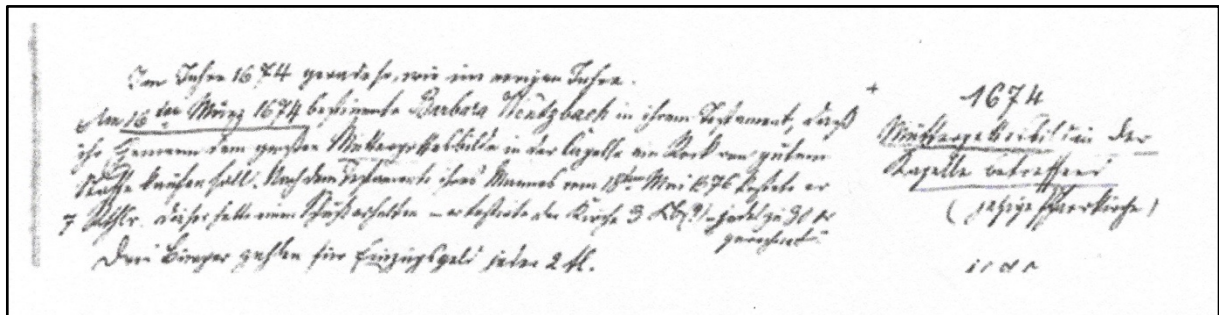 Im Jahre 1674 geradeso, wie im vorigen Jahre.
Am 16ten März 1674 bestimmte Barbara Weutzbach in ihrem Testament, daß
ihr Ehemann dem großen Muttergottesbilde in der Capelle ein Rock von gutem
Stoffe kaufen soll. Nach dem Testamente ihres Mannes vom 18ten Mai 1676 kostete er
7 Rthlr. dieser hatte einen erhalten – er testirte der Kirche 3 (?) – jedes zu 30
gerechnet.
Drei Bürger zahlten für Einzugsgeld jeder 2 fl.
+ 1674
Muttergottesbild in der
Kapelle betreffend
(jetzige Pfarrkirche)